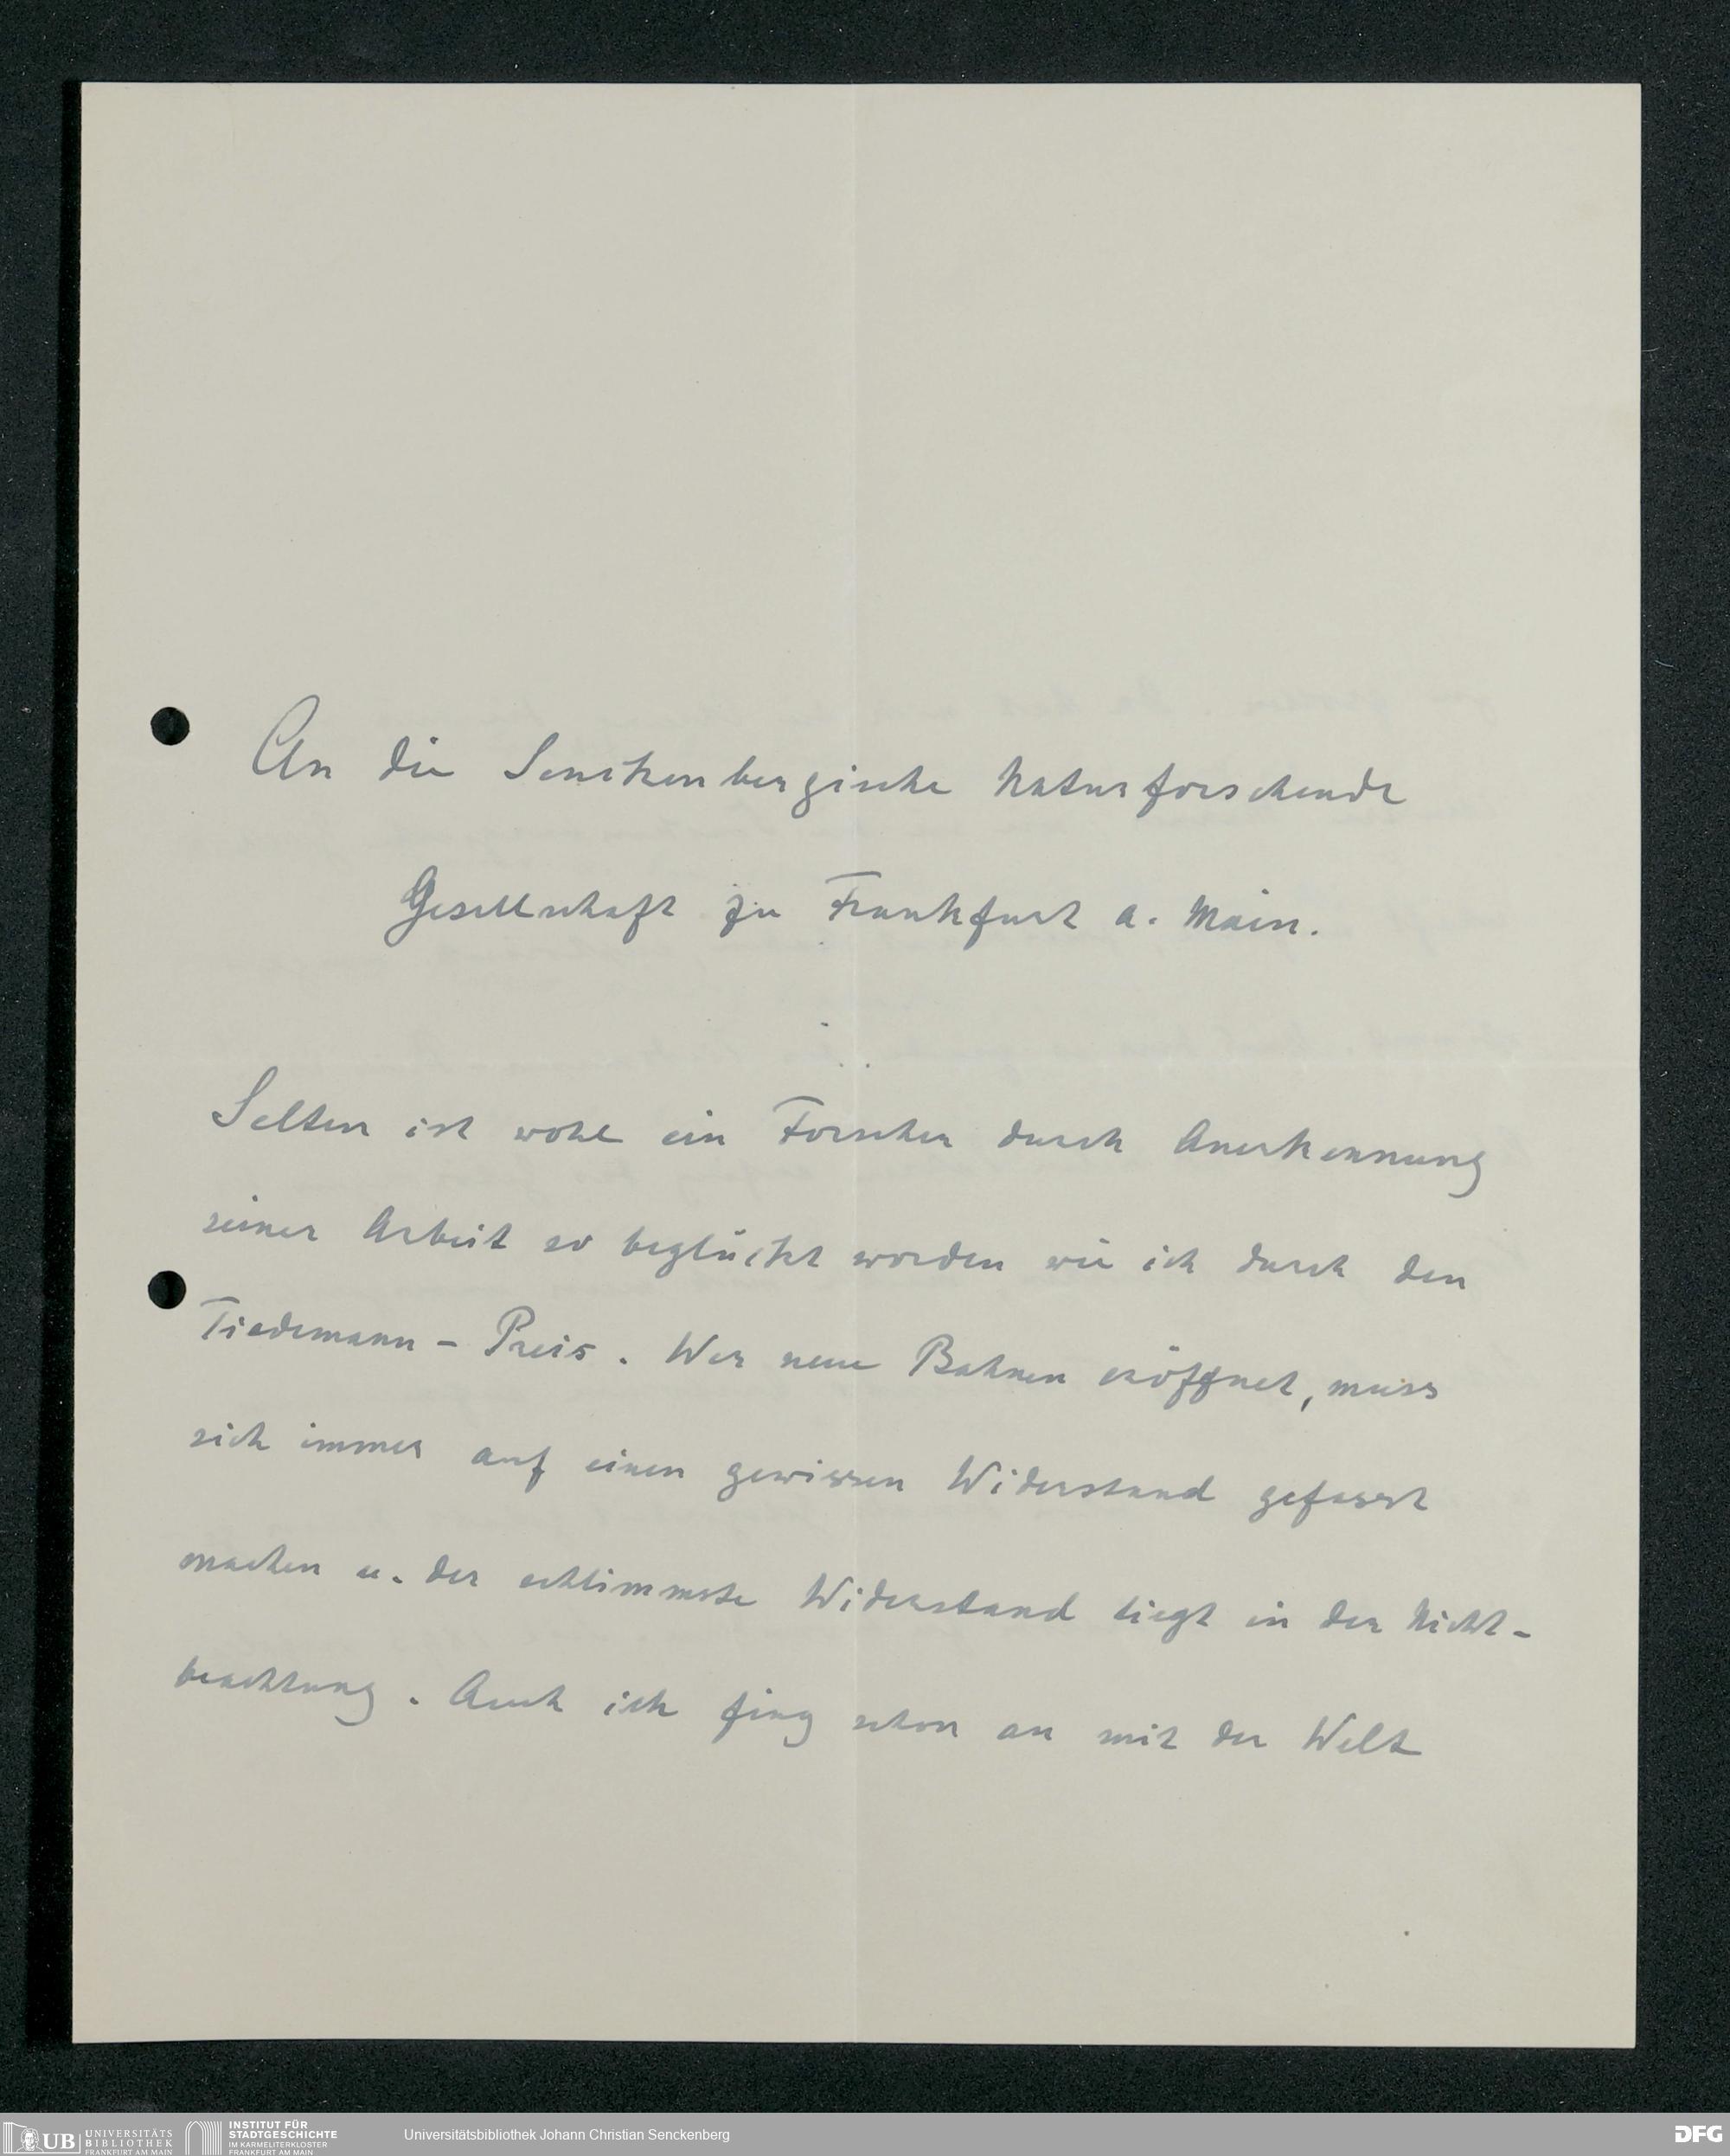 An die Senckenbergische Naturforschende
Gesellschaft zu Frankfurt a. Main.
Selten ist wohl ein Forscher durch Anerkennung
seiner Arbeit so beglückt worden wie ich durch den
Tiedemann - Preis. Wer neue Bahnen eröffnet, muss
sich immer auf einen gewissen Widerstand gefasst
machen u. der schlimmste Widerstand liegt in der Nicht-
beachtung. Auch ich fing schon an mit der Welt
UB UNIVERSITÄTS
BIBLIOTHEK
FRANKFURT AM MAIN
INSTITUT FÜR
STADTGESCHICHTE
IM KARMELITERKLOSTER
FRANKFURT AM MAIN
Universitätsbibliothek Johann Christian Senckenberg
DFG